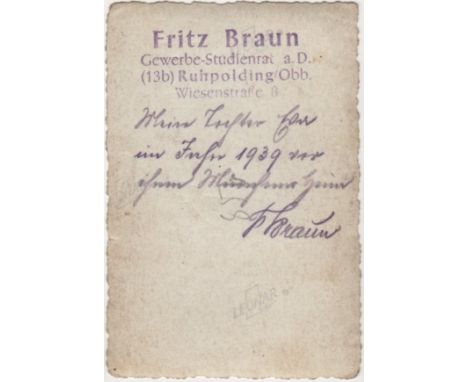 Fritz Braun
Gewerbe-Studienrat a.D.
(13b) Ruhpolding/Obb.
Wiesenstraße 8
Meine Tochter Eva
im Jahre 1939 vor
ihrem Münchner Heim
F Braun
LEONAR